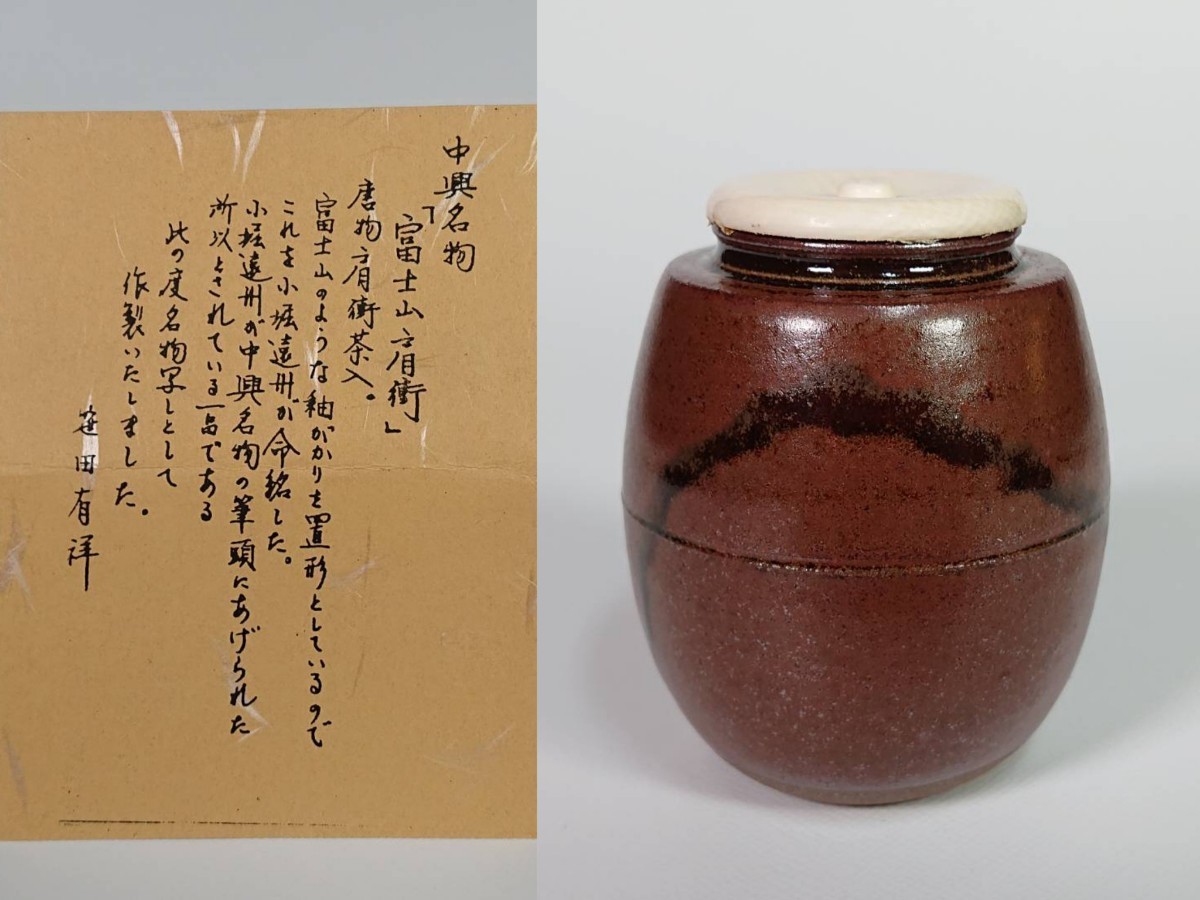 中興名物
「富士山肩衝」
唐物肩衝茶入。
富士山のような釉がかりを置形としているので
これを小堀遠州が命銘した。
小堀遠州が中興名物の筆頭にあげられた
所以とされている一品である
此の度名物写しとして
作製いたしました。
笹田有祥